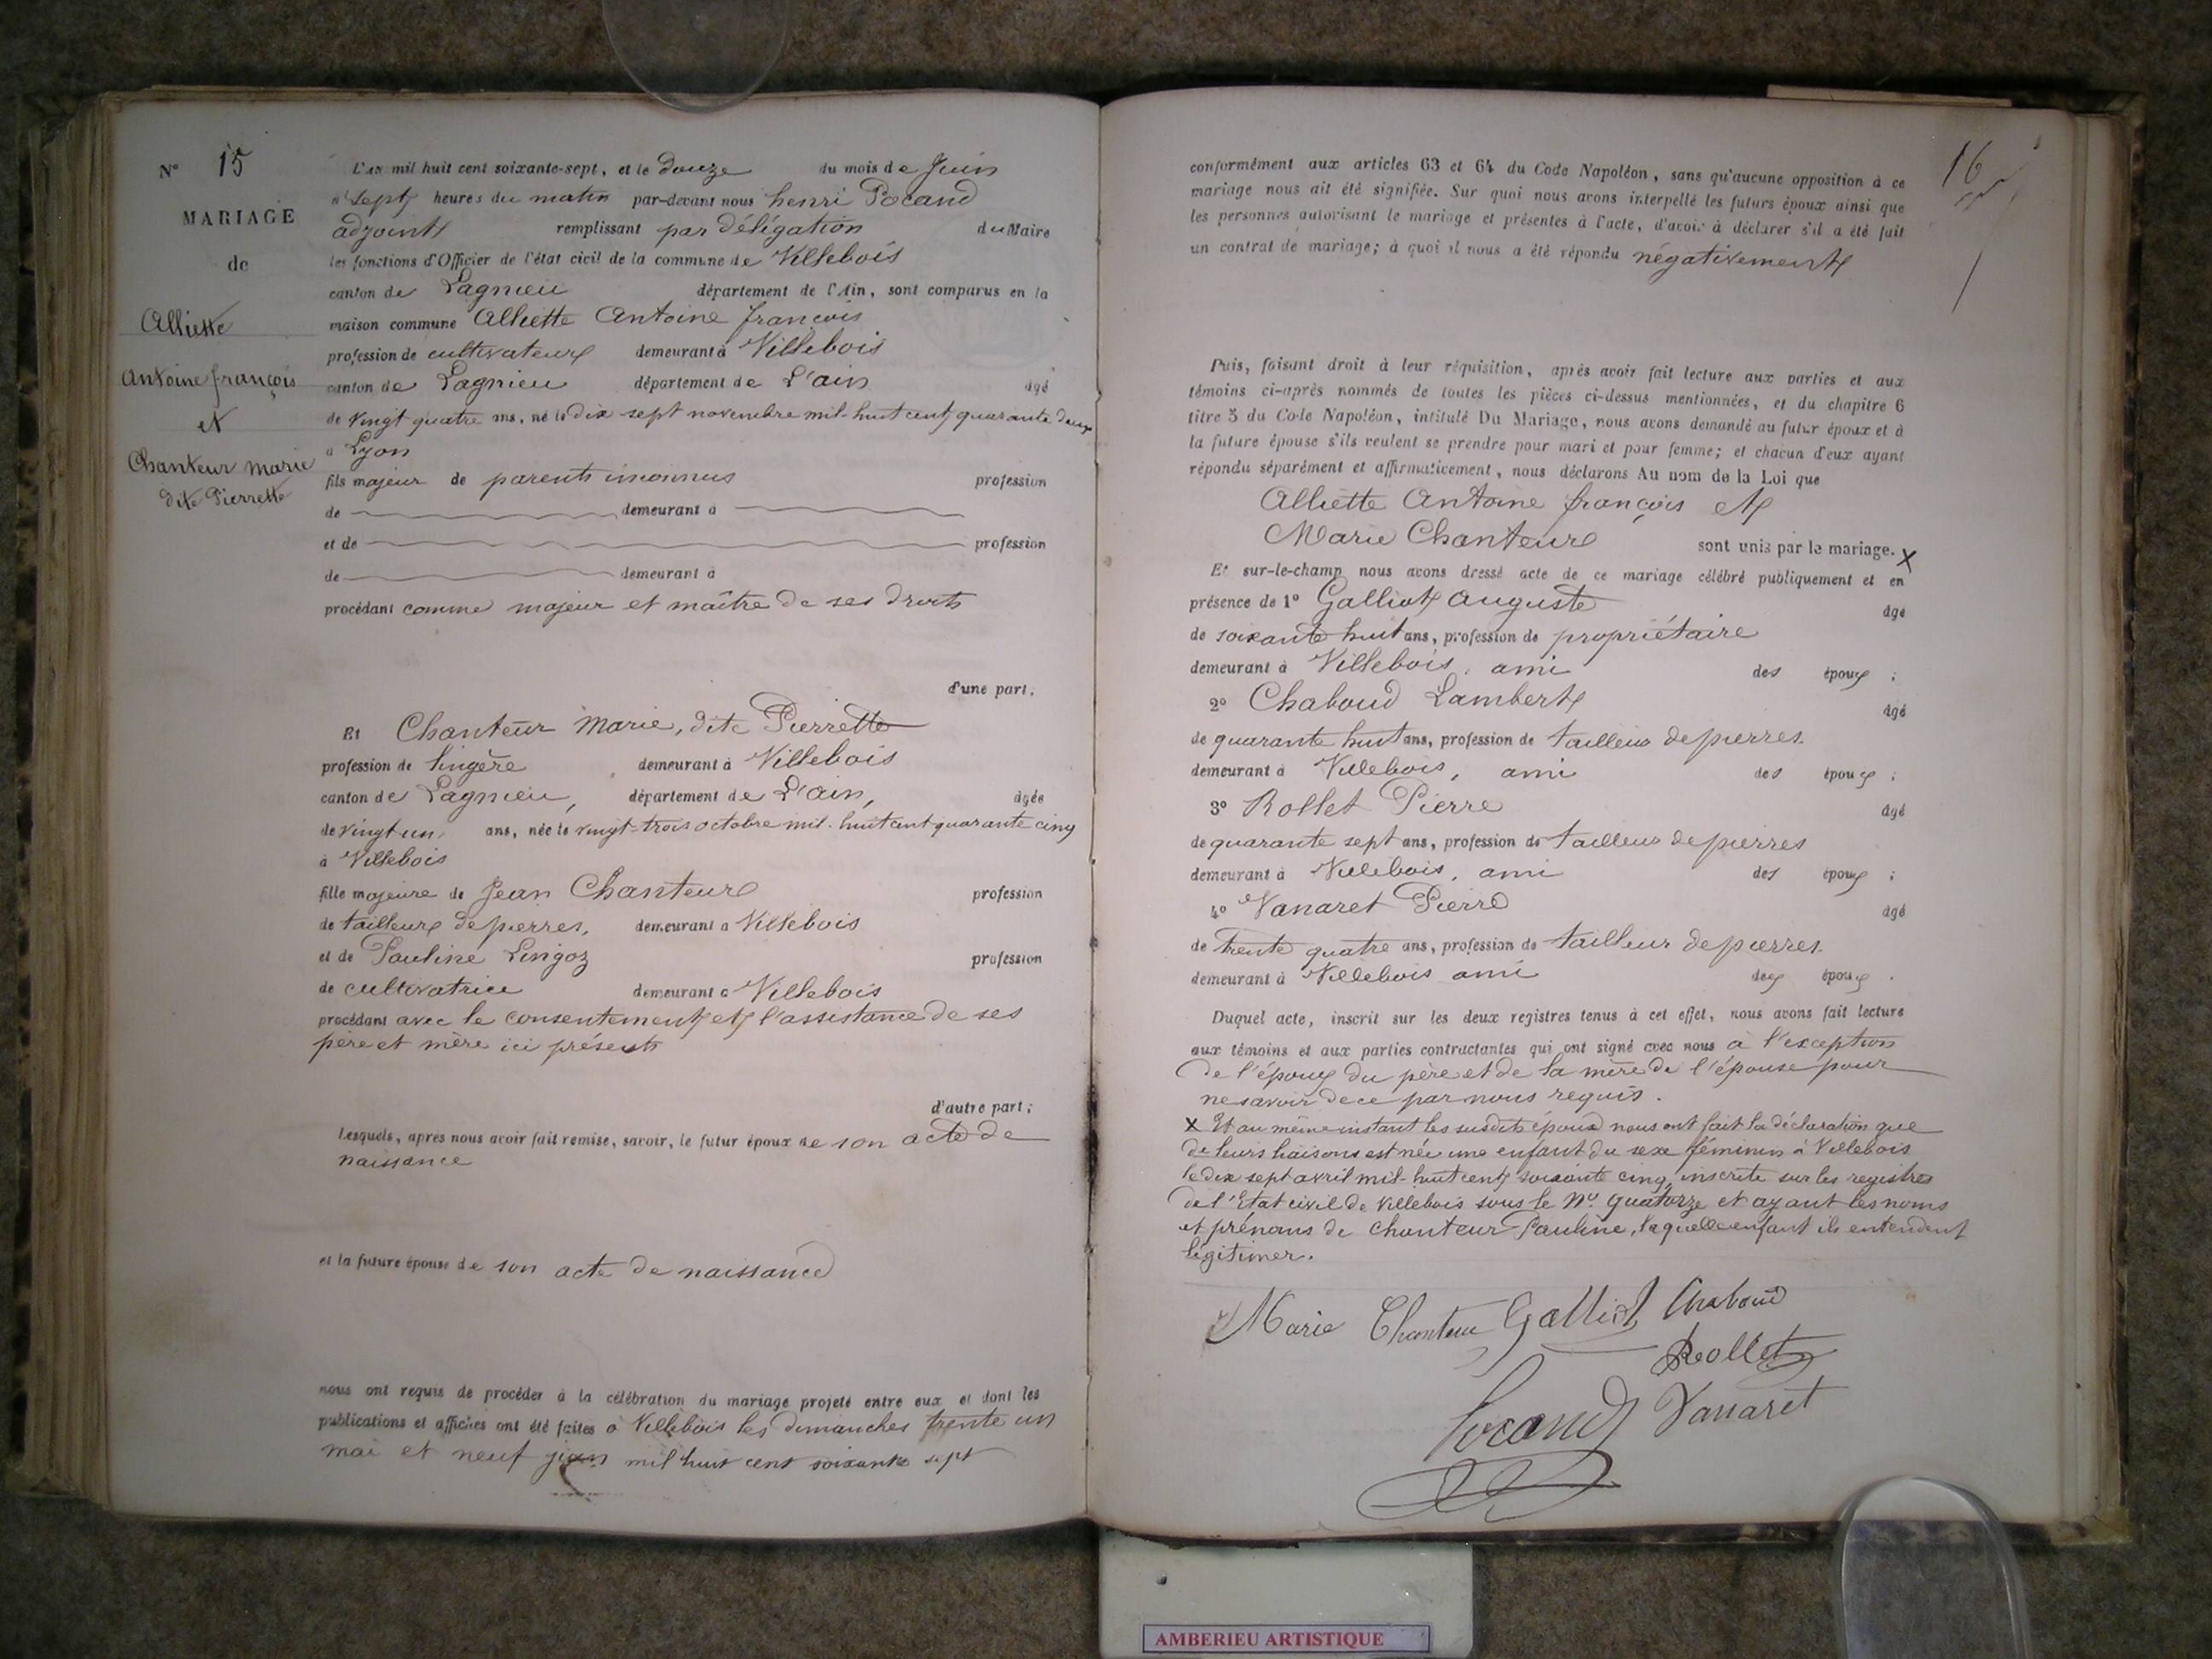 N° 15
MARIAGE
de
Alliette
Antoine françois
et
Chanteur Marie
dite Pierrette
L'an mil huit cent soixante-sept, et le Douze du mois de Juin
à sept heures du matin par-devant nous henri Pocand
adjoint remplissant par délégation du Maire
les fonctions d'Officier de l'état civil de la commune de Villebois
canton de Lagnieu département de l'Ain, sont comparus en la
maison commune Alliette Antoine françois
profession de cultivateur demeurant à Villebois
canton de Lagnieu département de L'ain âgé
de vingt quatre ans, né le dix sept novembre mil-huit cent quarante deux
à Lyon
fils majeur de parents inconnus profession
de demeurant à
et de profession
de demeurant à
procédant comme majeur et maître de ses droits
d'une part.
Et Chanteur Marie, dite Pierrette
profession de lingère demeurant à Villebois
canton de Lagnieu, département de L'ain, âgée
de vingt un ans, née le vingt-trois octobre mil-huit cent quarante cinq
à Villebois
fille majeure de Jean Chanteur profession
de tailleur de pierres, demeurant à Villebois
et de Pauline Lingoz profession
de cultivatrice demeurant à Villebois
procédant avec le consentement et l'assistance de ses
père et mère ici présents
d'autre part;
Lesquels, après nous avoir fait remise, savoir, le futur époux de son acte de
naissance
et la future épouse de son acte de naissance
nous ont requis de procéder à la célébration du mariage projeté entre eux et dont les
publications et affiches ont été faites à Villebois les dimanches trente un
mai et neuf juin mil huit cent soixante sept
16
conformément aux articles 63 et 64 du Code Napoléon, sans qu'aucune opposition à ce
mariage nous ait été signifiée. Sur quoi nous avons interpellé les futurs époux ainsi que
les personnes autorisant le mariage et présentes à l'acte, d'avoir à déclarer s'il a été fait
un contrat de mariage; à quoi il nous a été répondu négativement
Puis, faisant droit à leur réquisition, après avoir fait lecture aux parties et aux
témoins ci-après nommés de toutes les pièces ci-dessus mentionnées, et du chapitre 6
titre 5 du Code Napoléon, intitulé Du Mariage, nous avons demandé au futur époux et à
la future épouse s'ils veulent se prendre pour mari et pour femme; et chacun d'eux ayant
répondu séparément et affirmativement, nous déclarons Au nom de la Loi que
Alliette Antoine françois et
Marie Chanteur sont unis par le mariage. X
Et sur-le-champ nous avons dressé acte de ce mariage célébré publiquement et en
présence de 1° Galliot Auguste âgé
de soixante huit ans, profession de propriétaire
demeurant à Villebois, ami des époux ;
2° Chaboud Lambert âgé
de quarante huit ans, profession de tailleur de pierres.
demeurant à Villebois, ami des époux ;
3° Rollet Pierre âgé
de quarante sept ans, profession de tailleur de pierres
demeurant à Villebois, ami des époux ;
4° Vanaret Pierre âgé
de trente quatre ans, profession de tailleur de pierres.
demeurant à Villebois ami des époux .
Duquel acte, inscrit sur les deux registres tenus à cet effet, nous avons fait lecture
aux témoins et aux parties contractantes qui ont signé avec nous à l'exception
de l'époux du père et de la mère de l'épouse pour
ne savoir de ce par nous requis.
X Et au même instant les susdits époux nous ont fait la déclaration que
de leurs liaisons est née une enfant du sexe féminin à Villebois
le dix sept avril mil-huit cent soixante cinq, inscrite sur les registres
de l'Etat civil de Villebois sous le N° quatorze et ayant les noms
et prénoms de Chanteur Pauline, laquelle enfant ils entendent
légitimer.
Marie Chanteur Galliot Chaboud
Rollet
Pocand Vanaret
AMBERIEU ARTISTIQUE